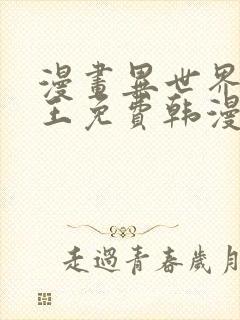 漫畫異世界
王免費韩漫
走過青春歲月